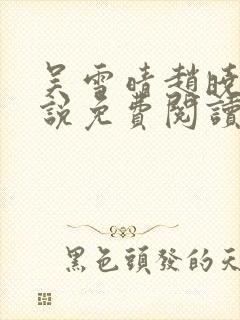 吴雪晴趙曉
說免費閱讀
黑色頭發的天